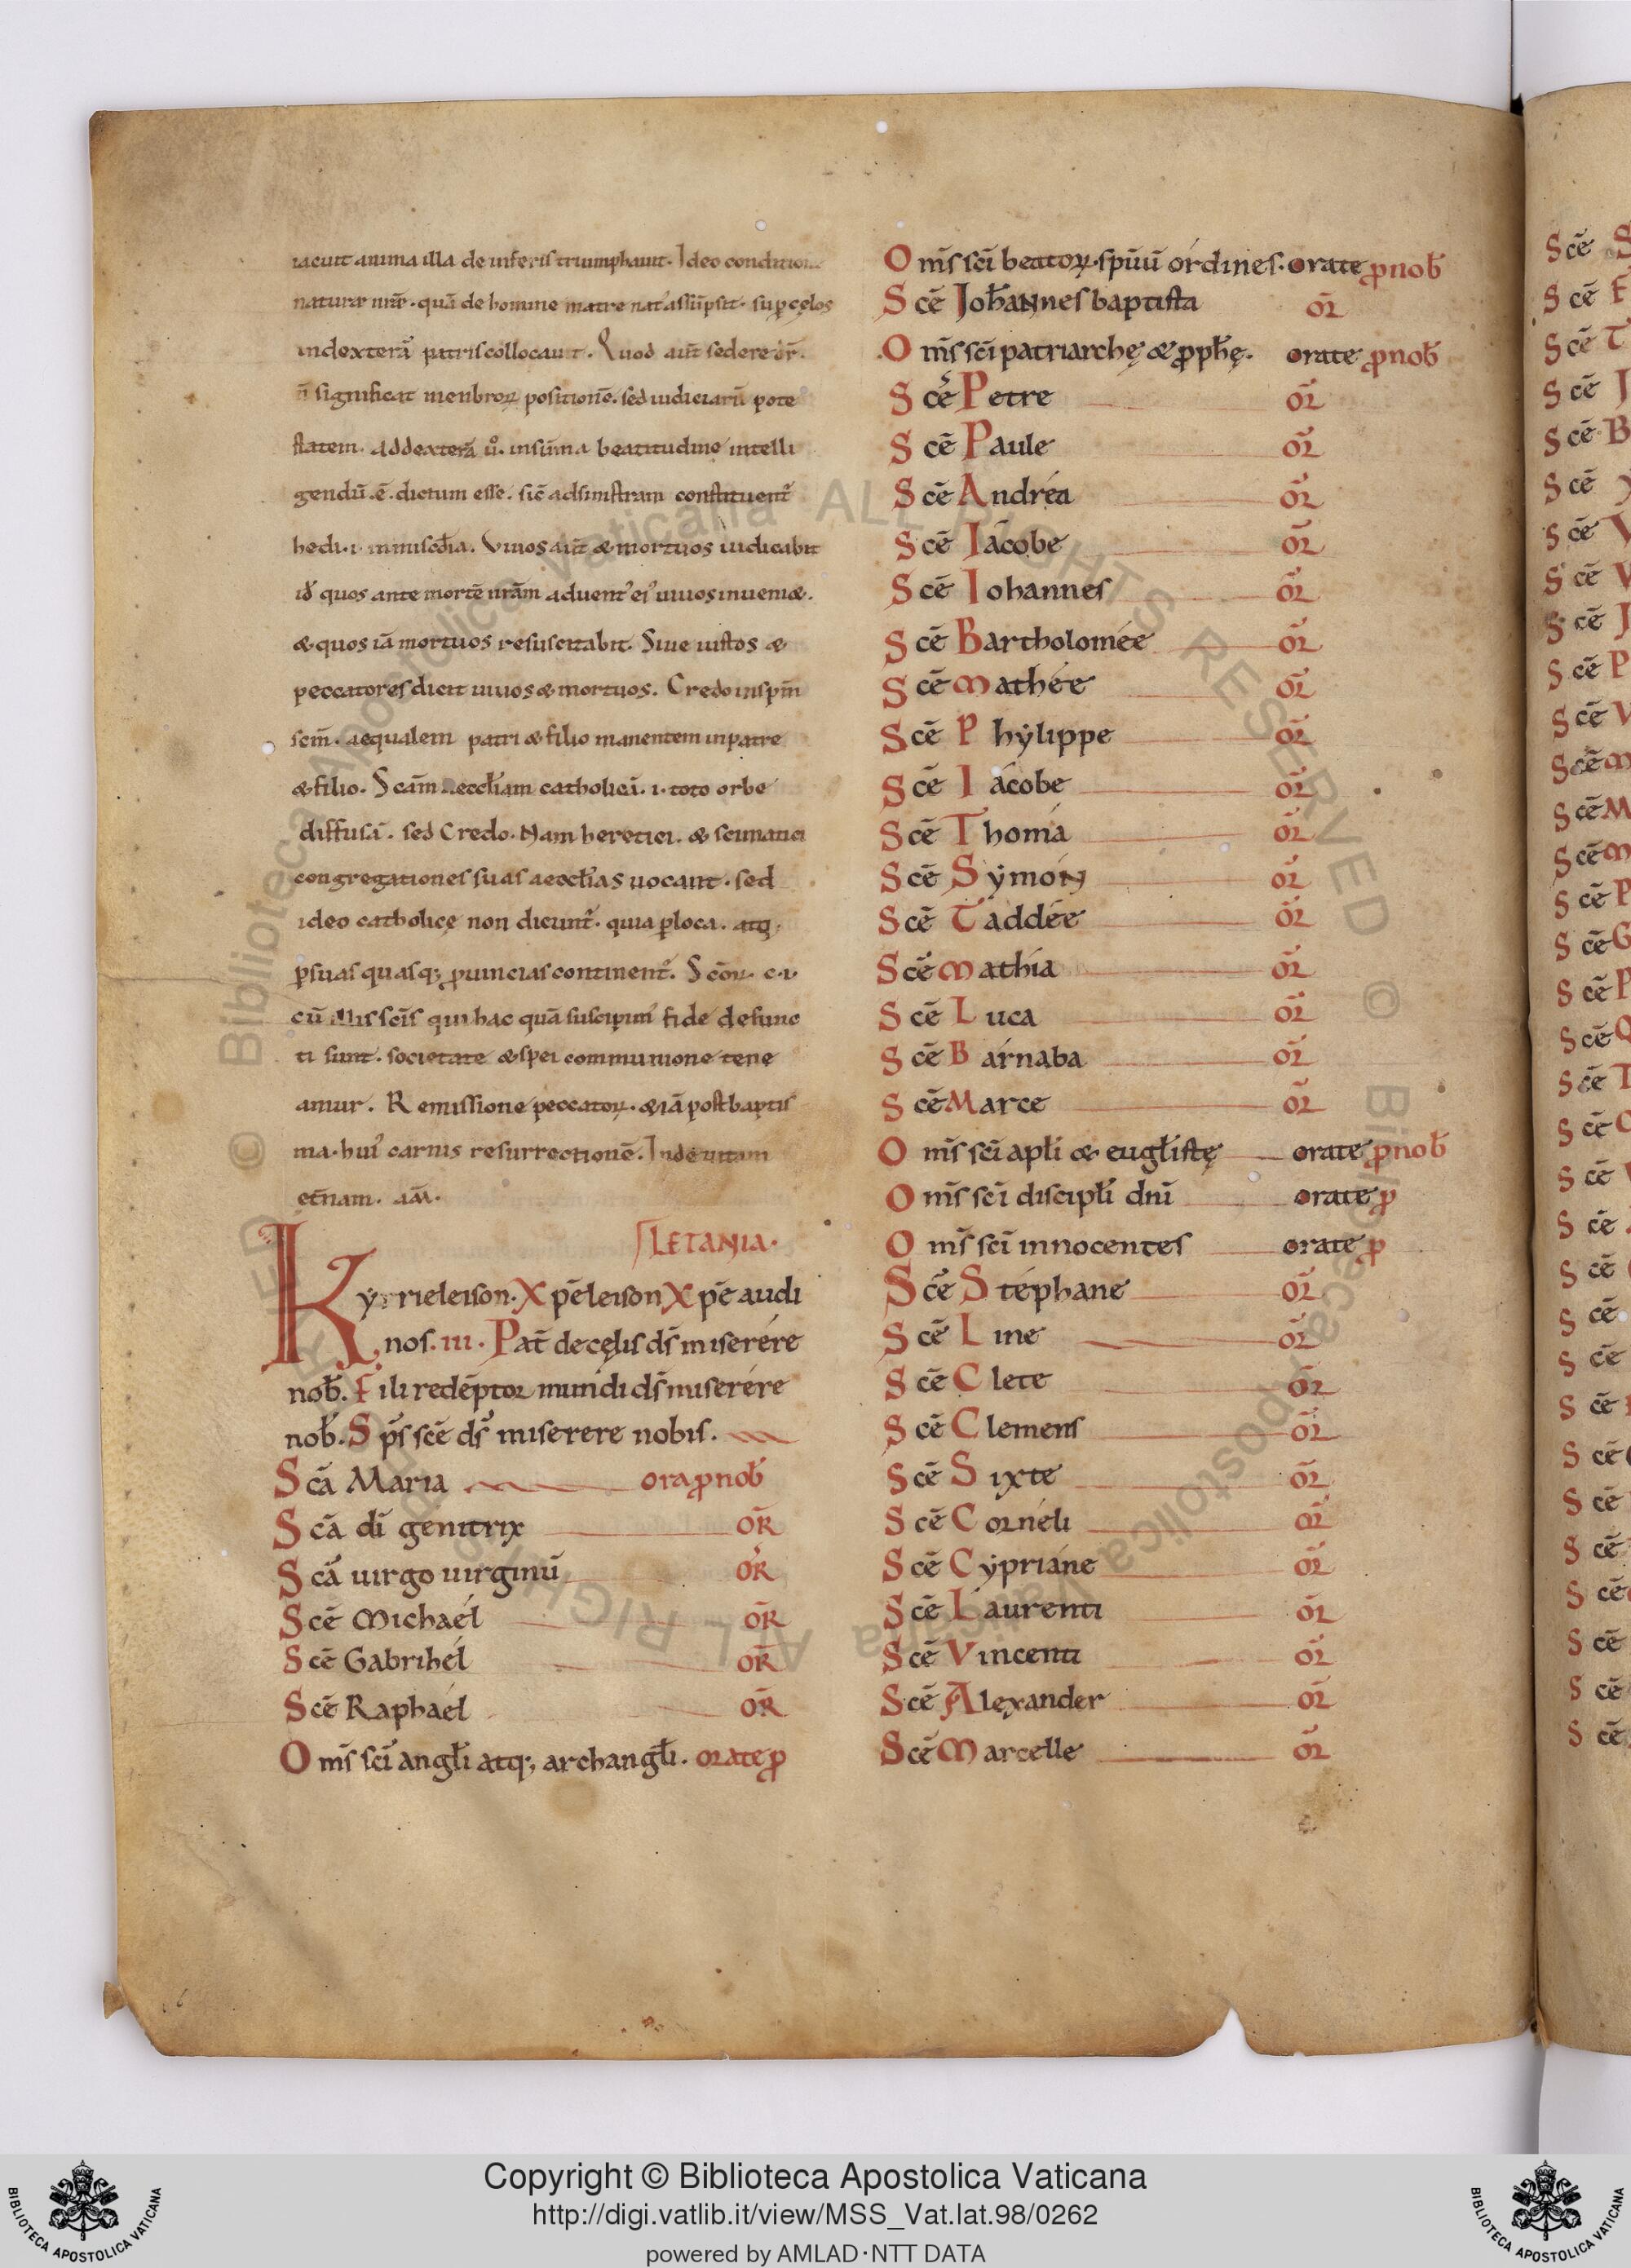 iacuit anima illa de inferis triumphauit. Ideo condition
naturæ nr̄æ. quā de homine matre nat' assūpsit. sup cęlos
indexterā patris collocauit. Quod aūt sedere dr̄.
n̄ significat menbroꝝ positionē. sed iudiciariā pote
statem. addexterā ū. insūma beatitudine intelli
gendū .ē. dictum esse. sic̄ adsinistram constituent᷑
hedi .i. in miseđia. Viuos aūt & mortuos iudicabit
id' quos ante mortē nrām aduent' ei' uiuos inueni&.
& quos iā mortuos resuscitabit. Siue iustos &
peccatores dicit uiuos & mortuos. Credo inspm̄
scm̄. aequalem patri & filio manentem inpatre
& filio. Scām aecclīam catholicā. i. toto orbe
diffusā. sed Credo. Nam heretici. & scismatici
congregationes suas aecclīas uocant. sed
ideo catholicę non dicunt᷑. quia ꝑloca. atq;
ꝑsuas quasq; ꝓuincias continent᷑. Scōꝝ. c. i.
cū illis scīs qui hac quā suscipim' fide defunc
ti sunt. societate & spei communione tene
amur. Remissione peccatoꝝ. & iā post baptis
ma. hui' carnis resurrectionē. Inde uitam
etn̄am. am̄.
LETANIA.
Kyrrieleison. Xpēleison Xpē audi
nos. III. Pat̄ de cęlis ds̄ miserére
nob̄. Fili redēptor mundi ds̄ miserére
nob̄. Sps̄ scē ds̄ miserere nobis.
Scā Maria ora ꝓ nob̄
Scā dī genitrix oR̄
Scā uirgo uirginū oR̄
Scē Michaél oR̄
Scē Gabrihél oR̄
Scē Raphaél oR̄
Oms̄ scī anglī atq; archanglī. orate ꝓ
Oms̄ scī beatoꝝ. spiūū órdines. orate ꝓ nob̄
Scē Joh̄aNnes baptista or̄
Oms̄ scī patriarchę & ꝓph̄ę. orate ꝓ nob̄
Scē Petre or̄
Scē Paule or̄
Scē Andréa or̄
Scē Iácobe or̄
Scē Iohannes or̄
Scē Bartholomée or̄
Scē Mathée or̄
Scē Phẏlippe or̄
Scē Iácobe or̄
Scē Thomá or̄
Scē SẏmóN or̄
Scē Taddée or̄
Scē Mathía or̄
Scē Luca or̄
Scē Bárnaba or̄
Scē Marce or̄
Oms̄ scī aplī & euglīstę orate ꝓ nob̄
Oms̄ scī discipl̄i dnī orate ꝓ
Oms̄ scī innocentes orate ꝓ
Scē Stéphane or̄
Scē Line or̄
Scē Clete or̄
Scē Clemens or̄
Scē Sixte or̄
Scē Cornéli or̄
Scē Cẏpriáne or̄
Scē Laurenti or̄
Scē Vincenti or̄
Scē Alexander or̄
Scē Marcelle or̄
Copyright © Biblioteca Apostolica Vaticana
http://digi.vatlib.it/view/MSS_Vat.lat.98/0262
powered by AMLAD·NTT DATA
BIBLIOTECA APOSTOLICA VATICANA
BIBLIOTECA APOSTOLICA VATICANA